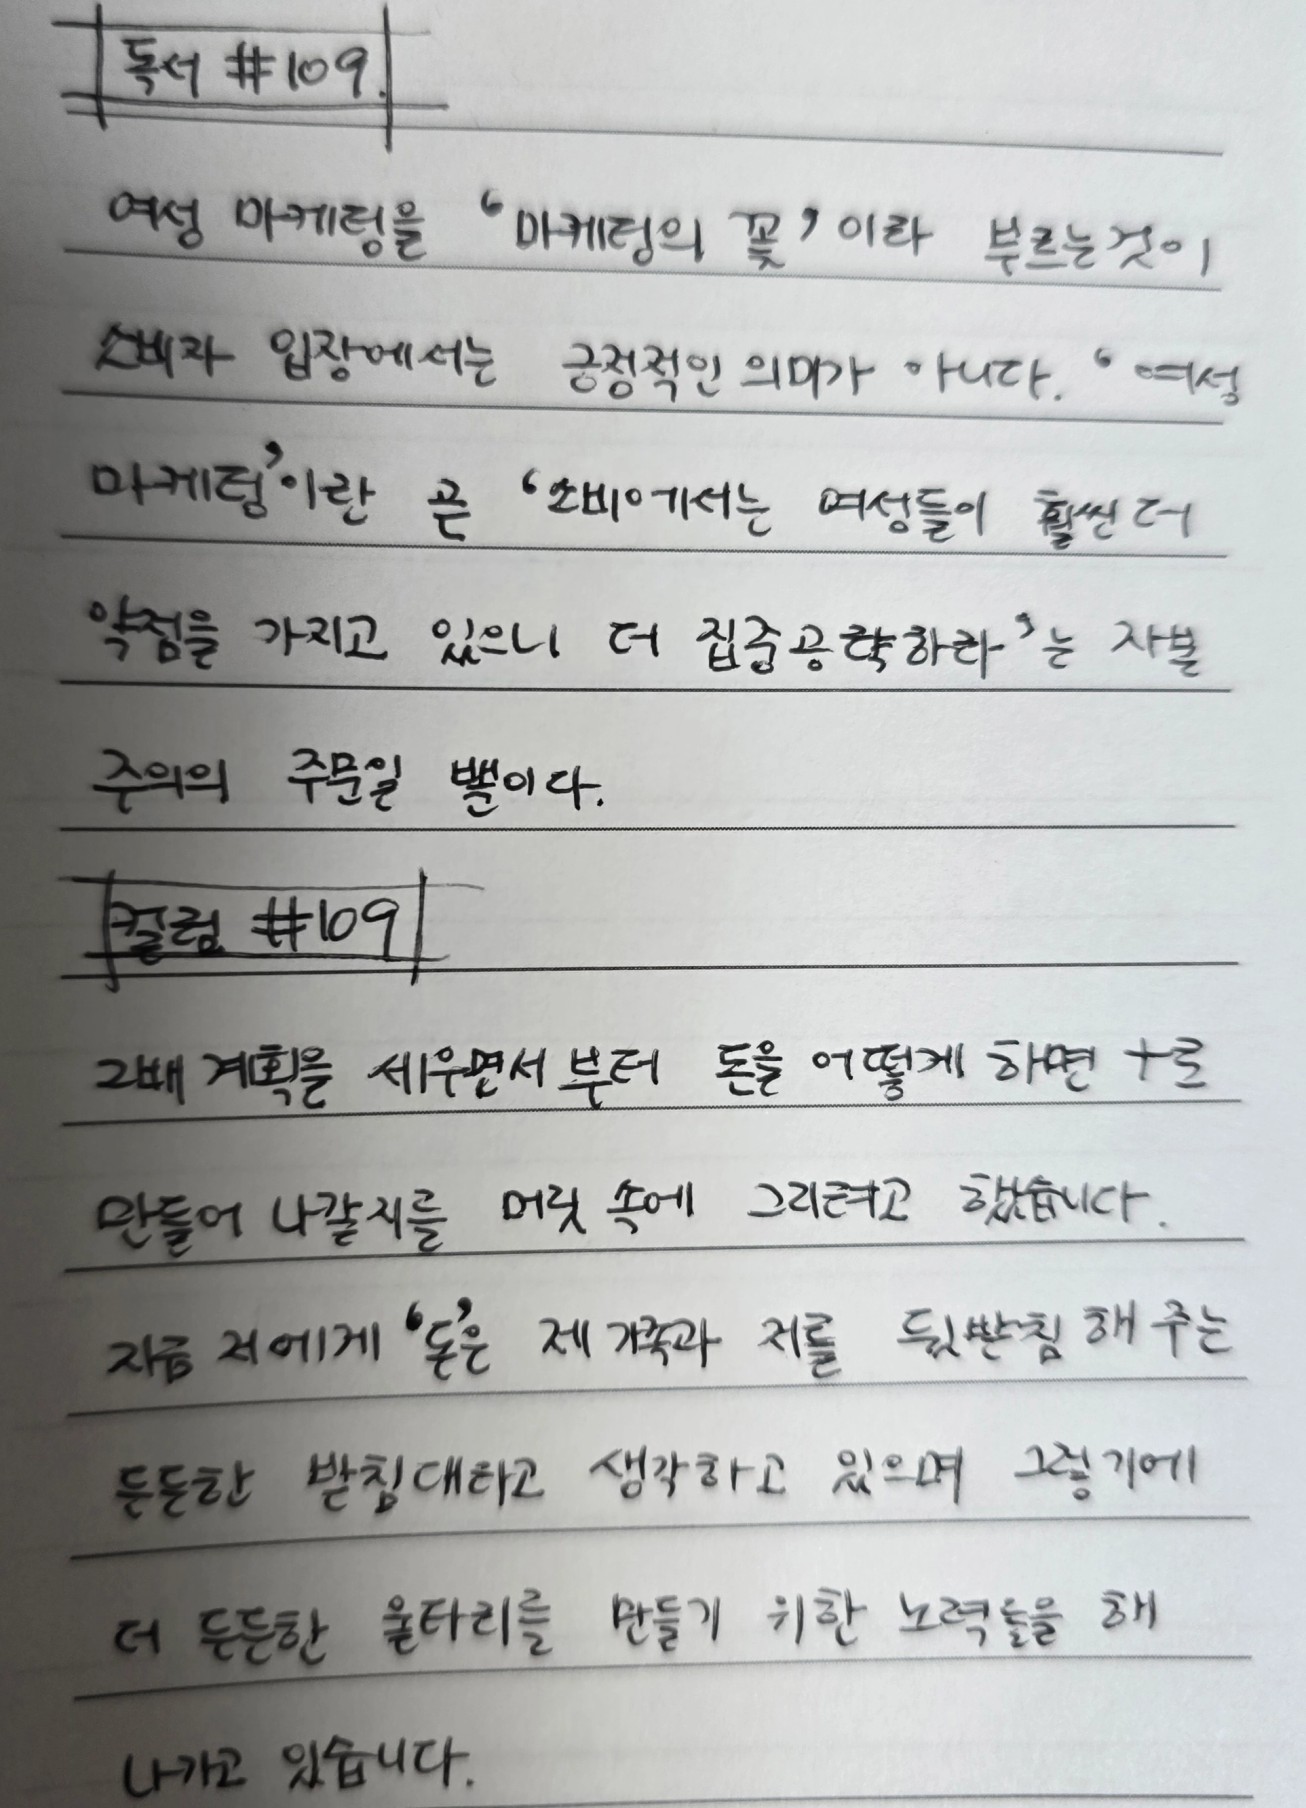 독서 #109.
여성 마케팅을 '마케팅의 꽃'이라 부르는것이
소비자 입장에서는 긍정적인 의미가 아니다. '여성
마케팅'이란 곧 '소비에서는 여성들이 훨씬 더
약점을 가지고 있으니 더 집중공략하라'는 자본
주의의 주문일 뿐이다.
컬럼 #109
2배 계획을 세우면서부터 돈을 어떻게 하면 +로
만들어 나갈지를 머릿 속에 그리려고 했습니다.
지금 저에게 '돈'은 제 가족과 저를 뒷받침 해 주는
든든한 받침대라고 생각하고 있으며 그렇기에
더 든든한 울타리를 만들기 위한 노력들을 해
나가고 있습니다.